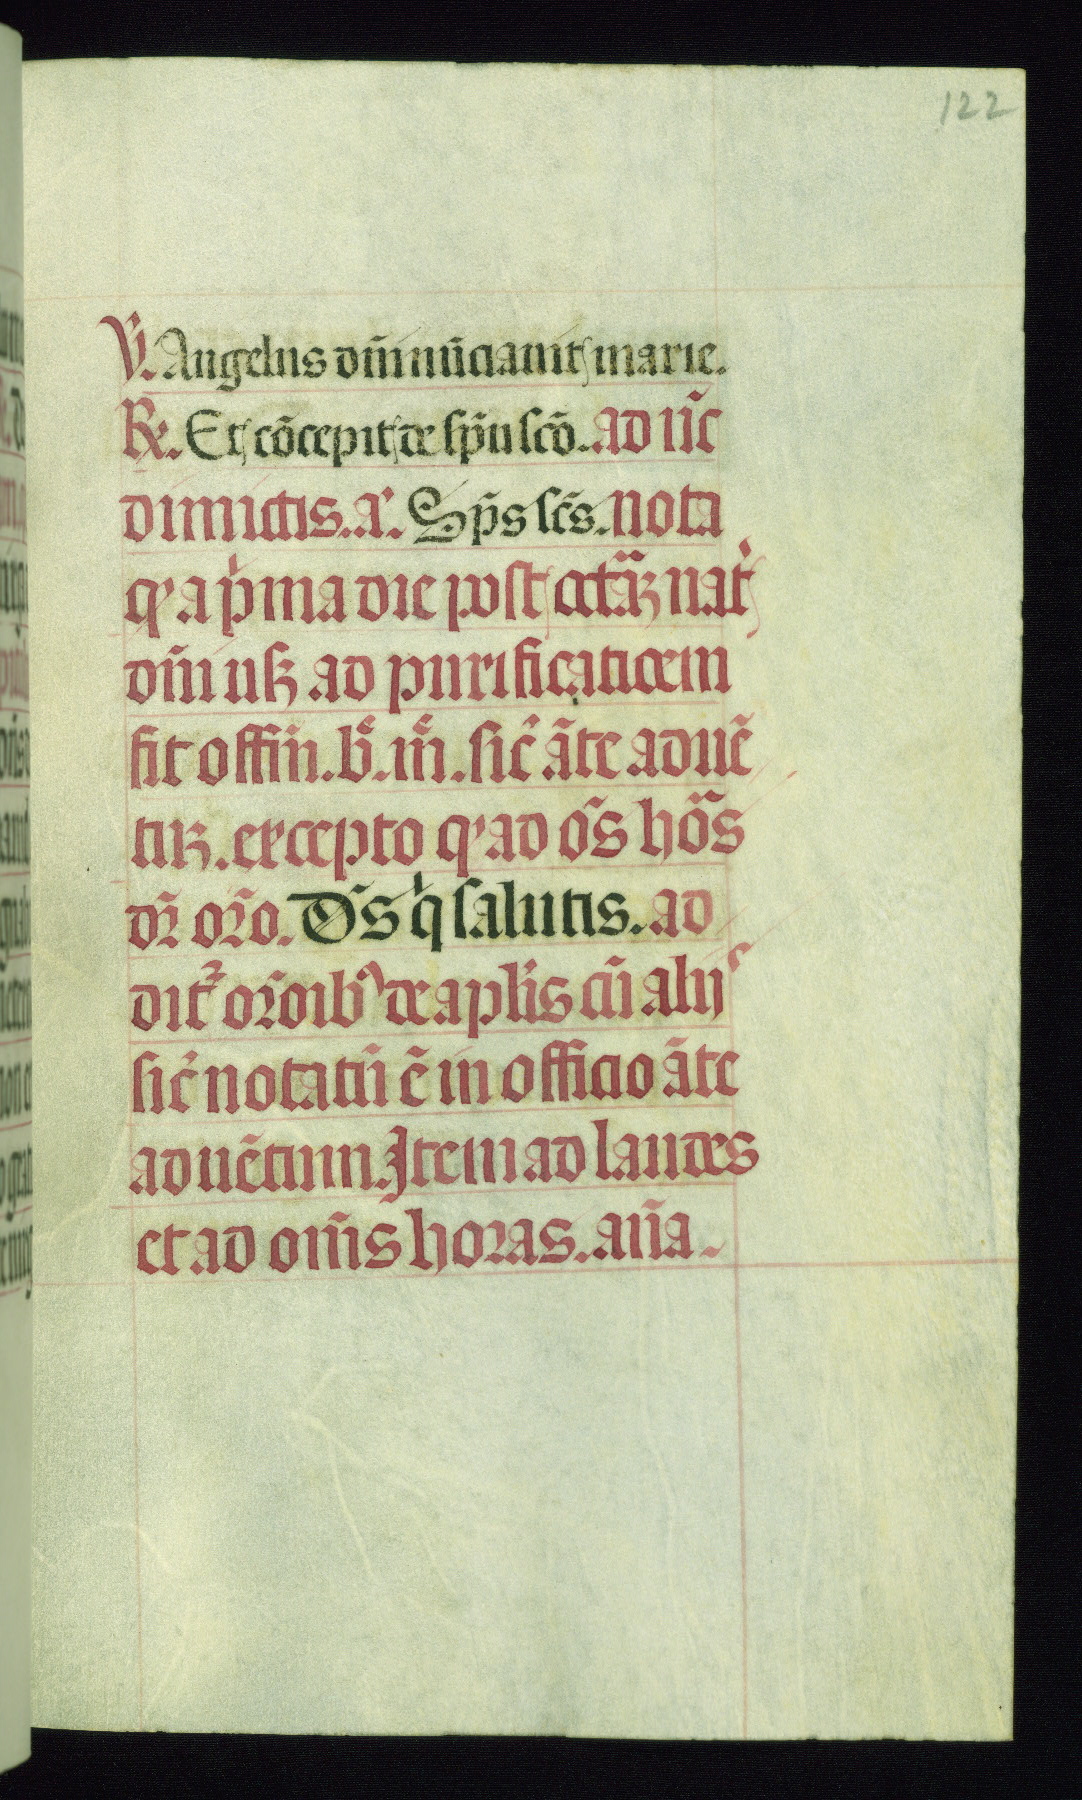 122
Ṽ. Angelus dñi nũciauit marie.
R̃. Et cõcepit de sp̃u scõ. ad ñc
dimictis. aʳ. Sp̃s sc̃s. nota
qͥ a pͥma die post octãꝝ natͥ
dñi usꝫ ad purificationem
fit offiñ. bͤ. mͤ. sic̃ ãte aduẽ
tuꝫ. excepto qͥ ad õs hõs
dr̃ or̃o. D̃s qͥ salutis. ad
ditͬ or̃oibꝰ de apl̃is cũ aliis
sic̃ notatũ ẽ in officio ãte
aduẽtum. Item ad laudes
et ad om̃s horas. añа.